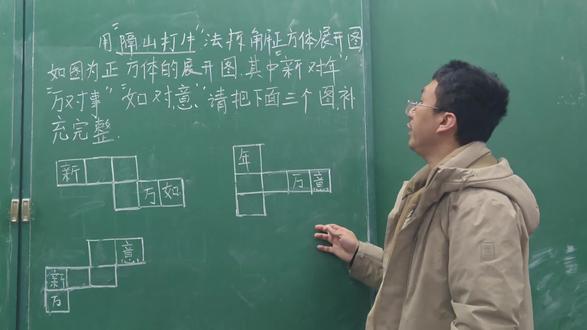 用"隔山打牛"法拆解正方体展开图
如图为正方体的展开图.其中"新对年"
"万对事""如对意"请把下面三个图补
充完整.
新
万 如
年
万 意
意
新
万